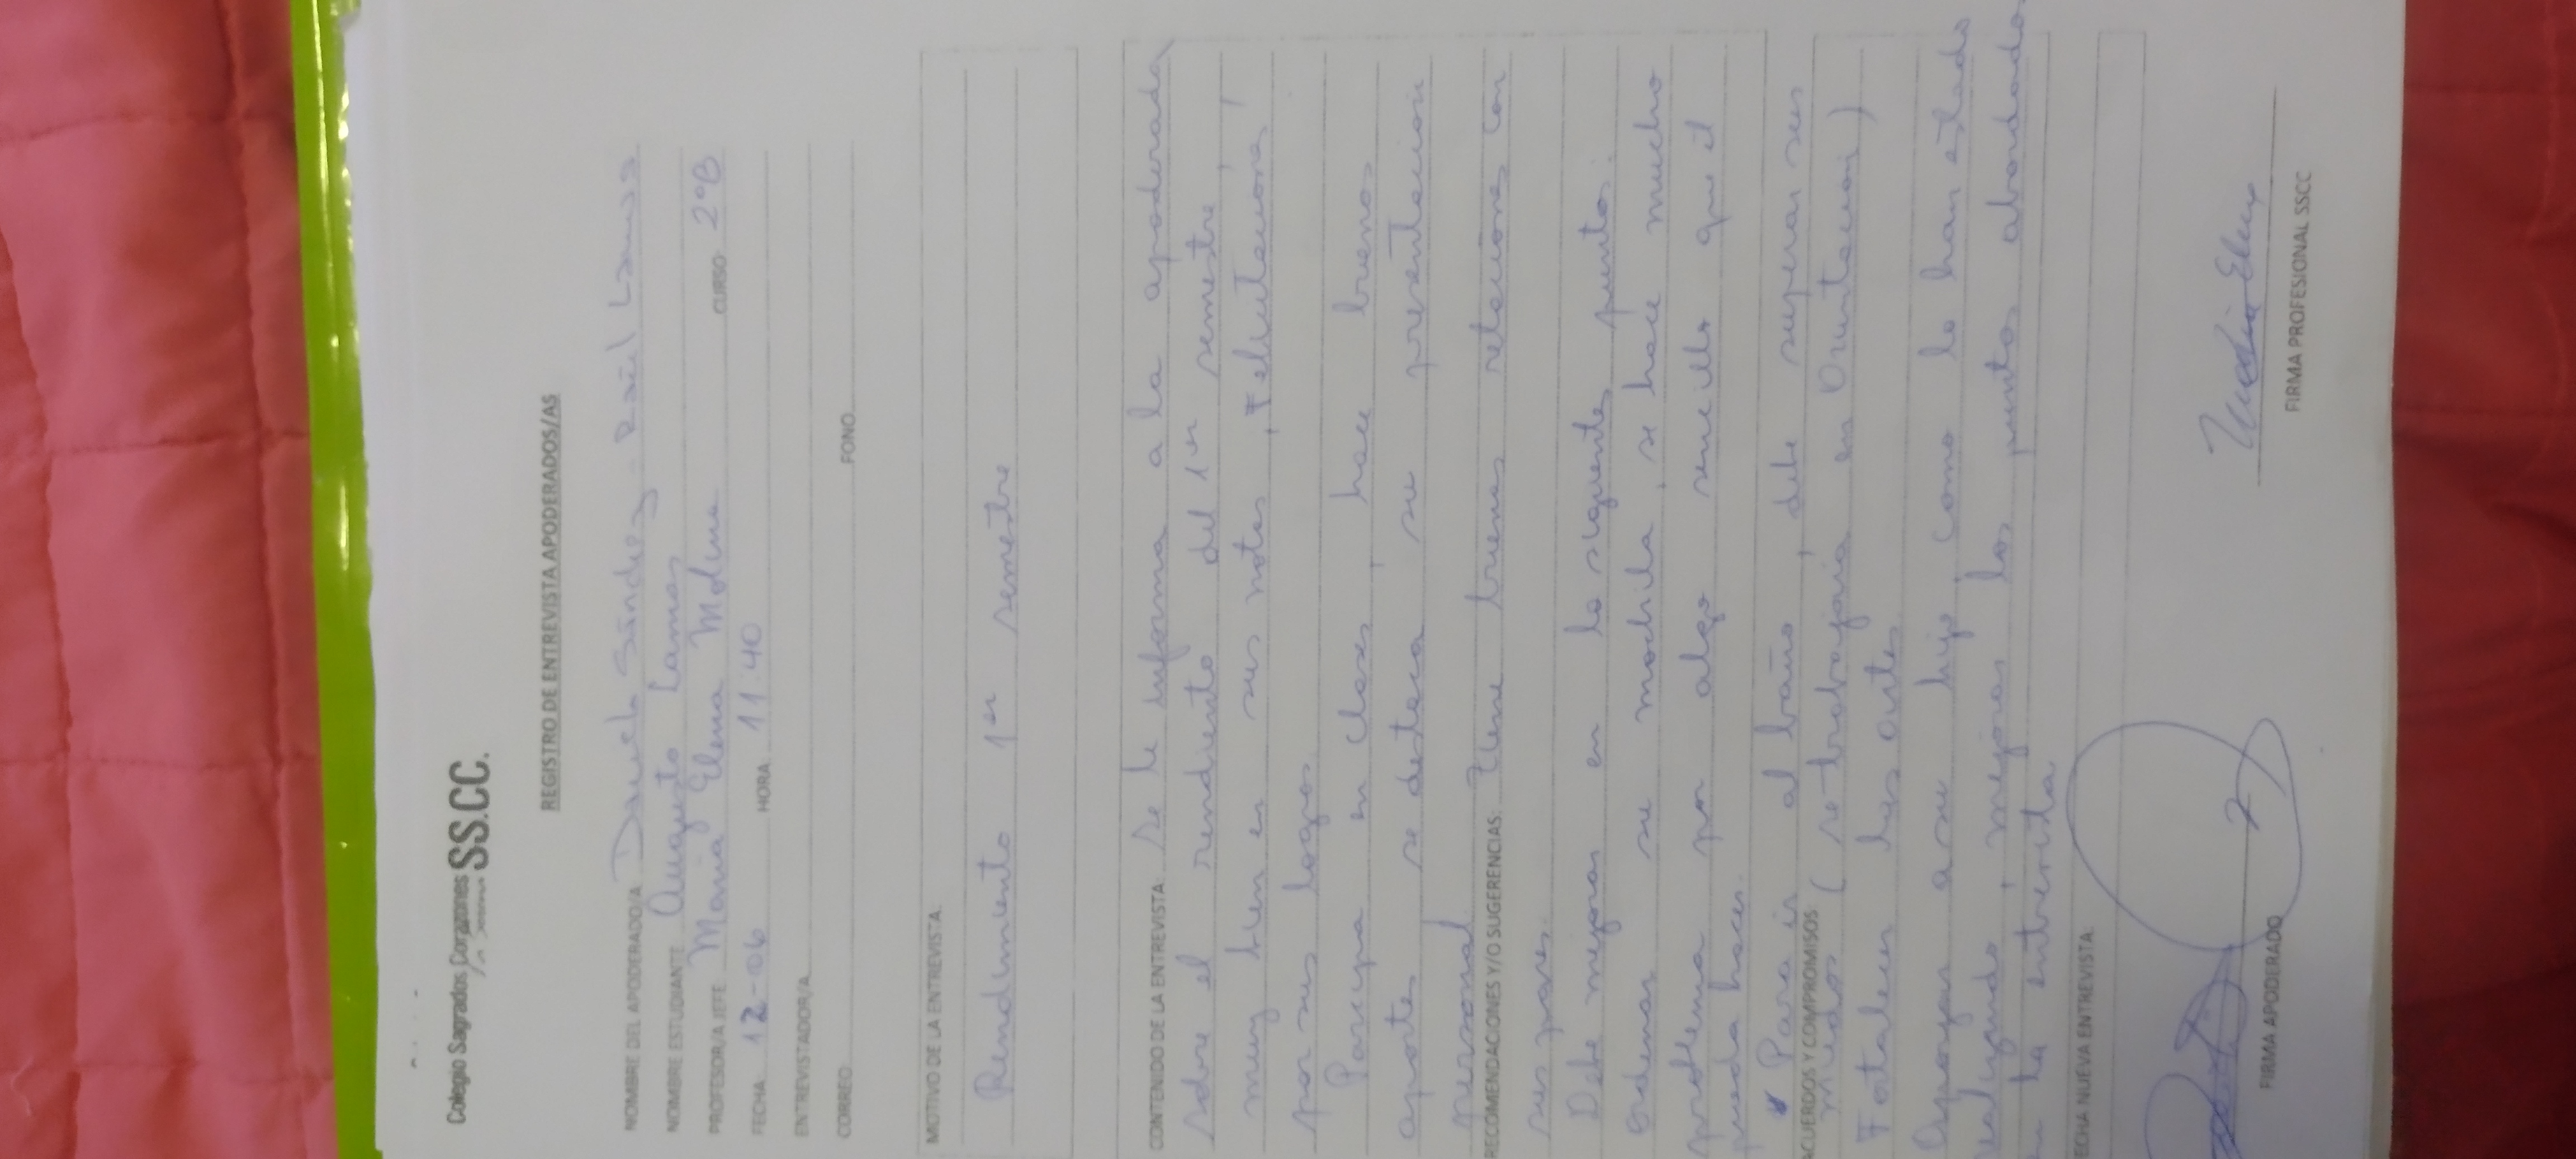 Colegio Sagrados Corazones SS.CC.
REGISTRO DE ENTREVISTA APODERADOS/AS
NOMBRE DEL APODERADO/A Daniela Sánchez - Raúl Lamas
NOMBRE ESTUDIANTE Augusto Lamas
PROFESOR/A JEFE María Elena Molina CURSO 2ºB
FECHA 12-06 HORA 11:40
ENTREVISTADOR/A
CORREO FONO
MOTIVO DE LA ENTREVISTA:
Rendimiento 1er semestre
CONTENIDO DE LA ENTREVISTA: Se le informa a la apoderada
sobre el rendimiento del 1er semestre,
muy bien en sus notas, Felicitaciones
por sus logros.
Participa en clases, hace buenos
aportes se destaca su presentación
personal
RECOMENDACIONES Y/O SUGERENCIAS: Tiene buenas relaciones con
sus pares.
Debe mejorar en lo siguientes puntos:
Ordenar su mochila, se hace mucho
problema por algo sencillo que él
pueda hacer.
Para ir al baño, debe superar sus
ACUERDOS Y COMPROMISOS
miedos (se trabajará en Orientación)
Fortalecer las artes
Apoyar a su hijo como lo han estado
realizando, mejorar los puntos abordados
en la entrevista.
FECHA NUEVA ENTREVISTA:
FIRMA APODERADO
FIRMA PROFESIONAL SSCC